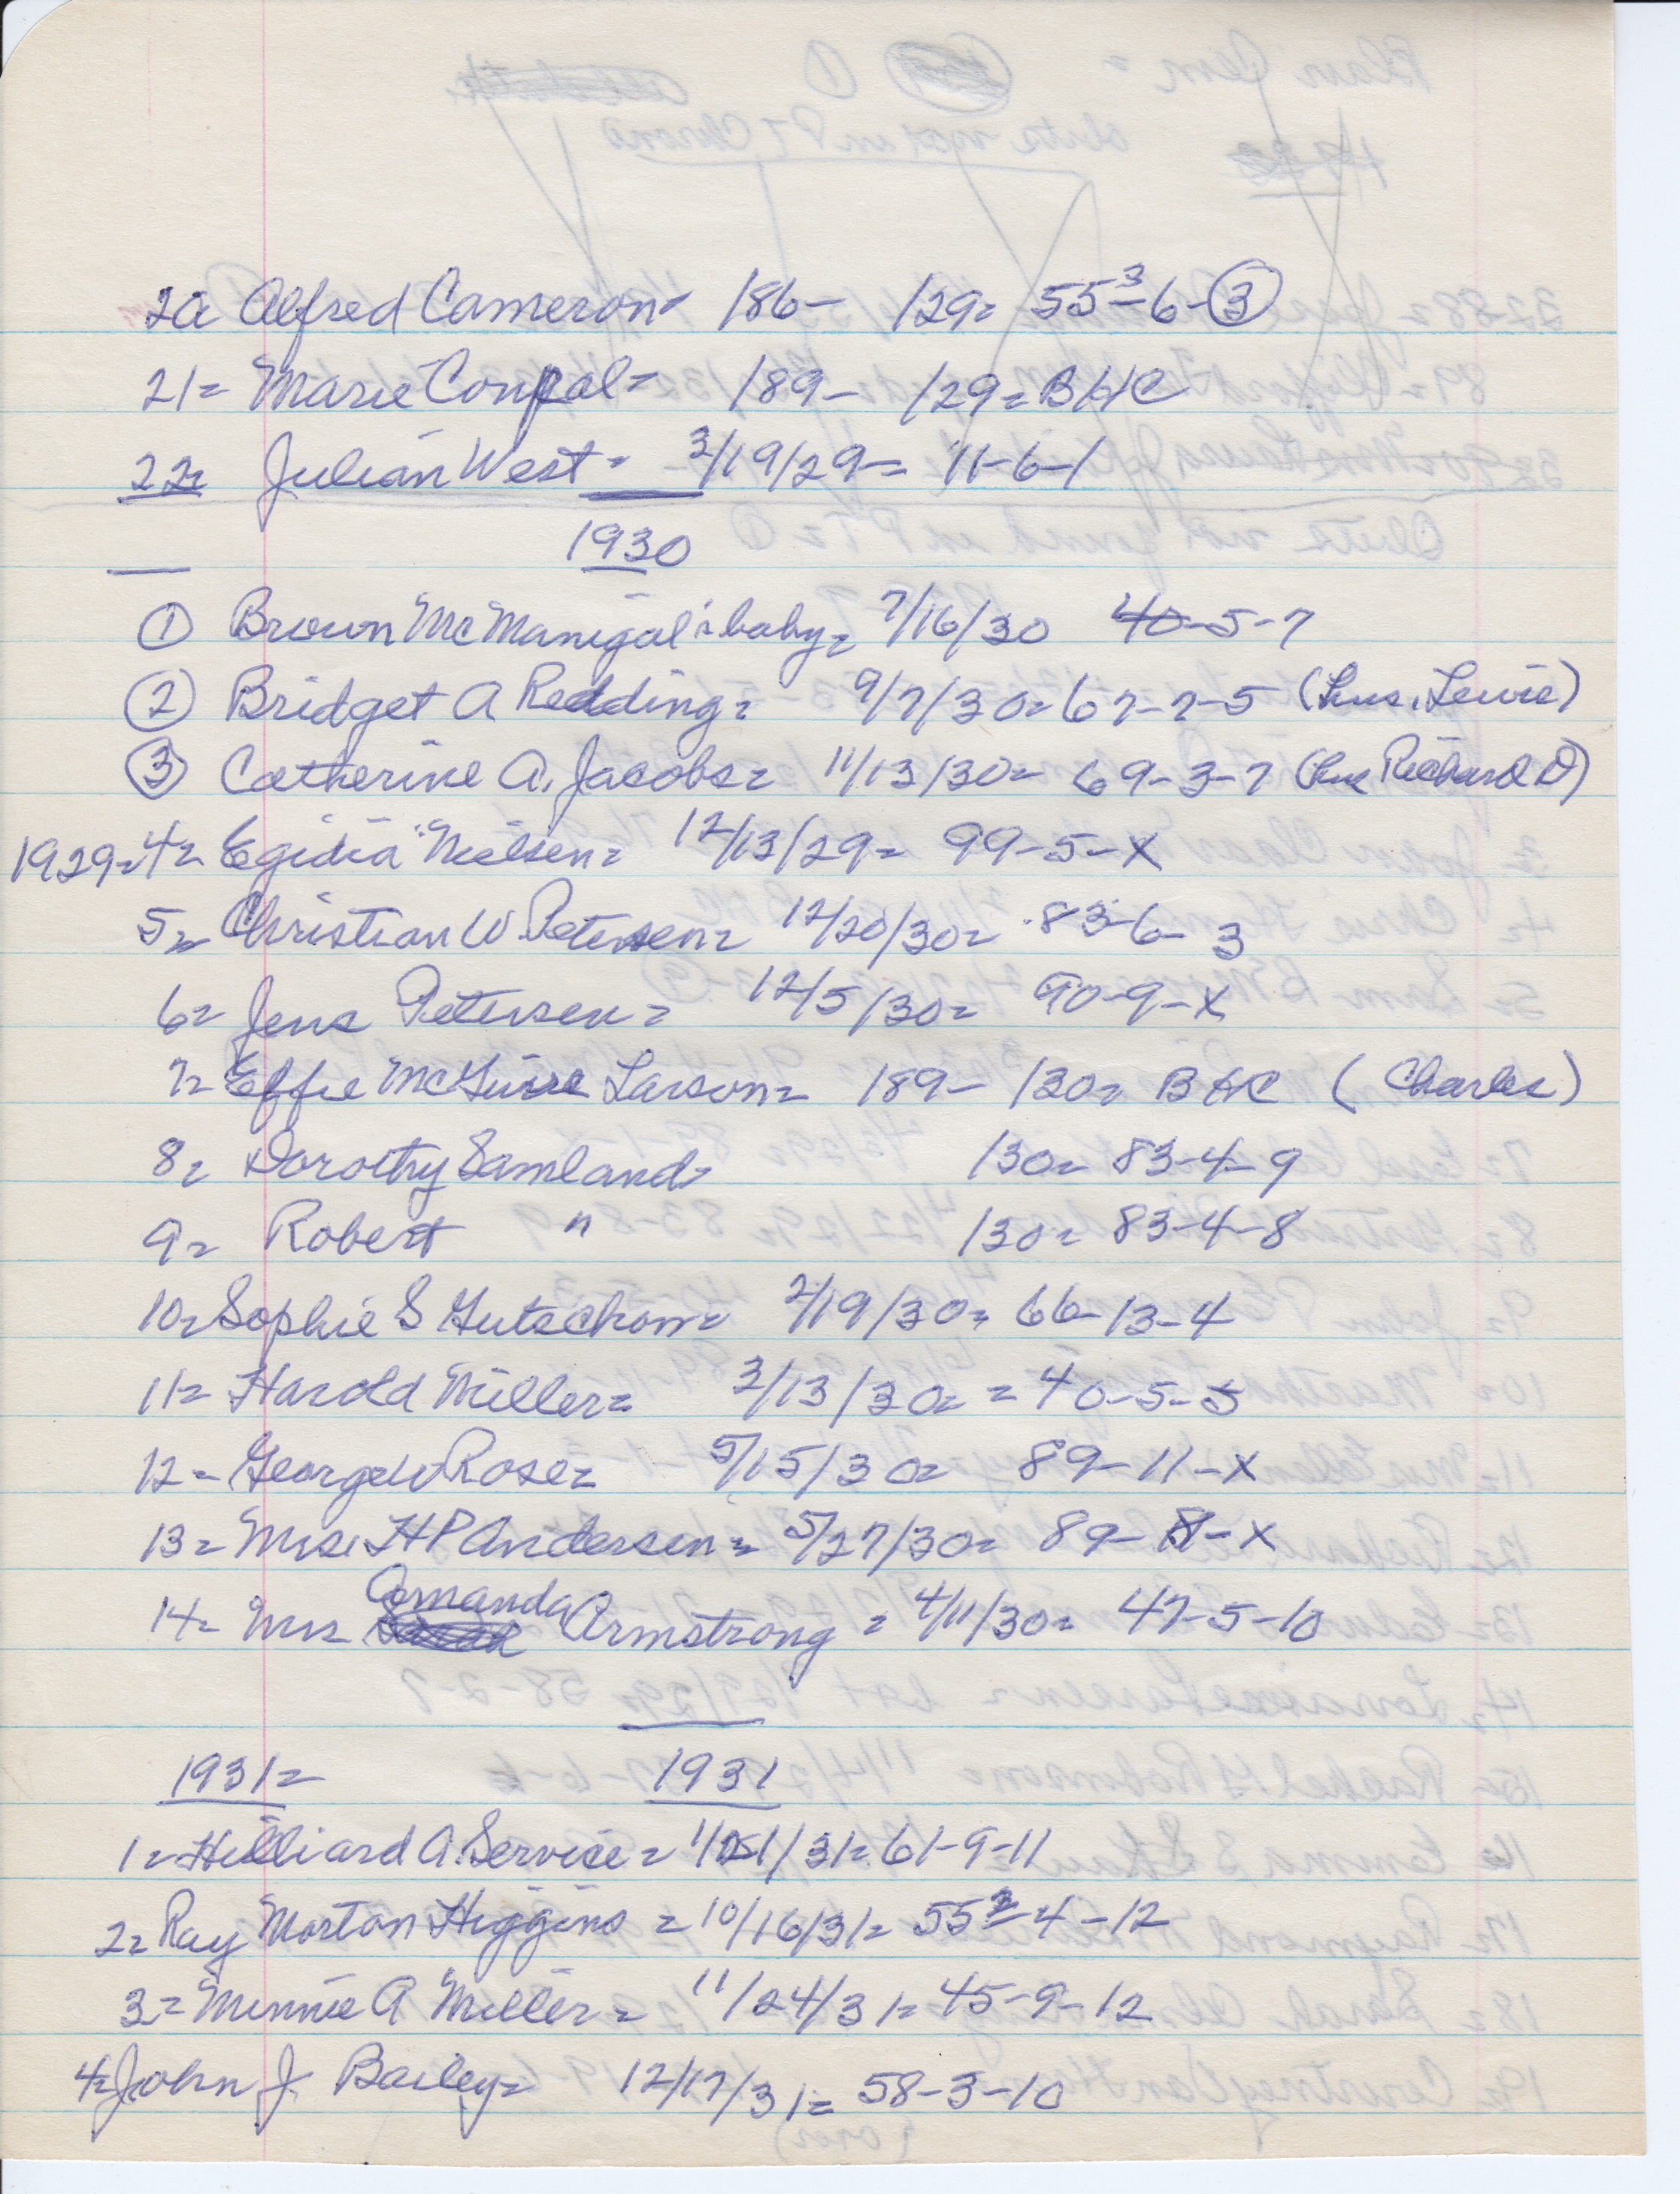 20 Alfred Cameron= 186- /29= 55³-6-③
21= Marie Conpal= 189- /29= BHC
22= Julian West= 3/19/29= 11-6-1
1930
① Brown McManigal's baby= 7/16/30 40-5-7
② Bridget A Redding= 9/7/30= 67-7-5 (Hus. Lewis)
③ Catherine A. Jacobs= 11/13/30= 69-3-7 (Hus Richard D)
1929= 4= Egidia Nielsen= 12/13/29= 99-5-X
5= Christian W. Petersen= 12/20/30= 83-6-3
6= Jens Petersen= 12/5/30= 90-9-X
7= Effie McGuire Larson= 189- /30= BHC (Charles)
8= Dorothy Samland= /30= 83-4-9
9= Robert " /30= 83-4-8
10= Sophie S Gutschow= 2/19/30= 66-13-4
11= Harold Miller= 3/13/30= = 40-5-5
12= George W Rose= 5/15/30= 89-11-X
13= Mrs. HP Andersen= 5/27/30= 89-8-X
14= Mrs Amanda Armstrong= 4/11/30= 47-5-10
1931= 1931
1= Hilliard A. Service= /31= 61-9-11
2= Ray Morton Higgins= 10/16/31= 55²-4-12
3= Minnie A Miller= 11/24/31= 45-9-12
4= John J. Bailey= 12/17/31= 58-3-10